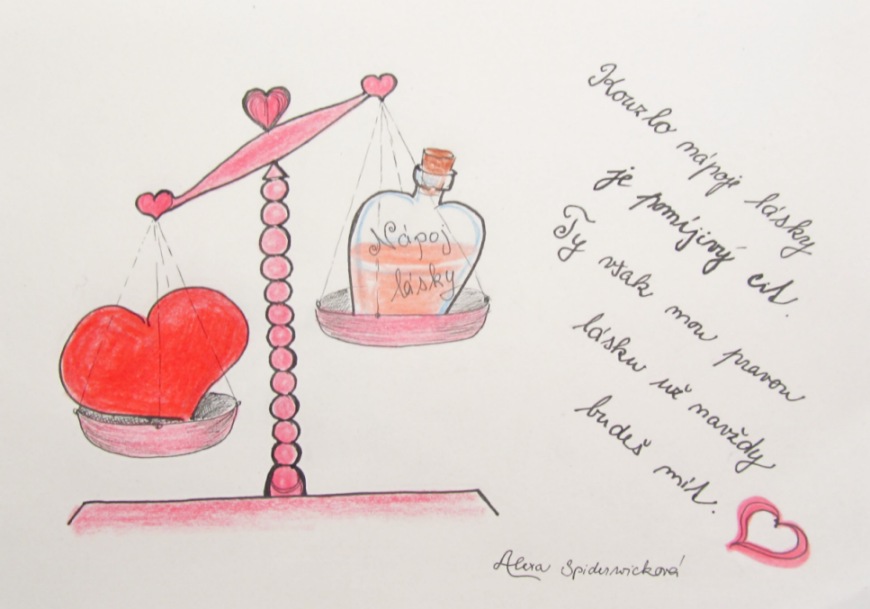 Nápoj
lásky
Kouzlo nápoje lásky
je pomíjivý cit.
Ty však mou pravou
lásku už navždy
budeš mít.
Alexa Spiderwicková